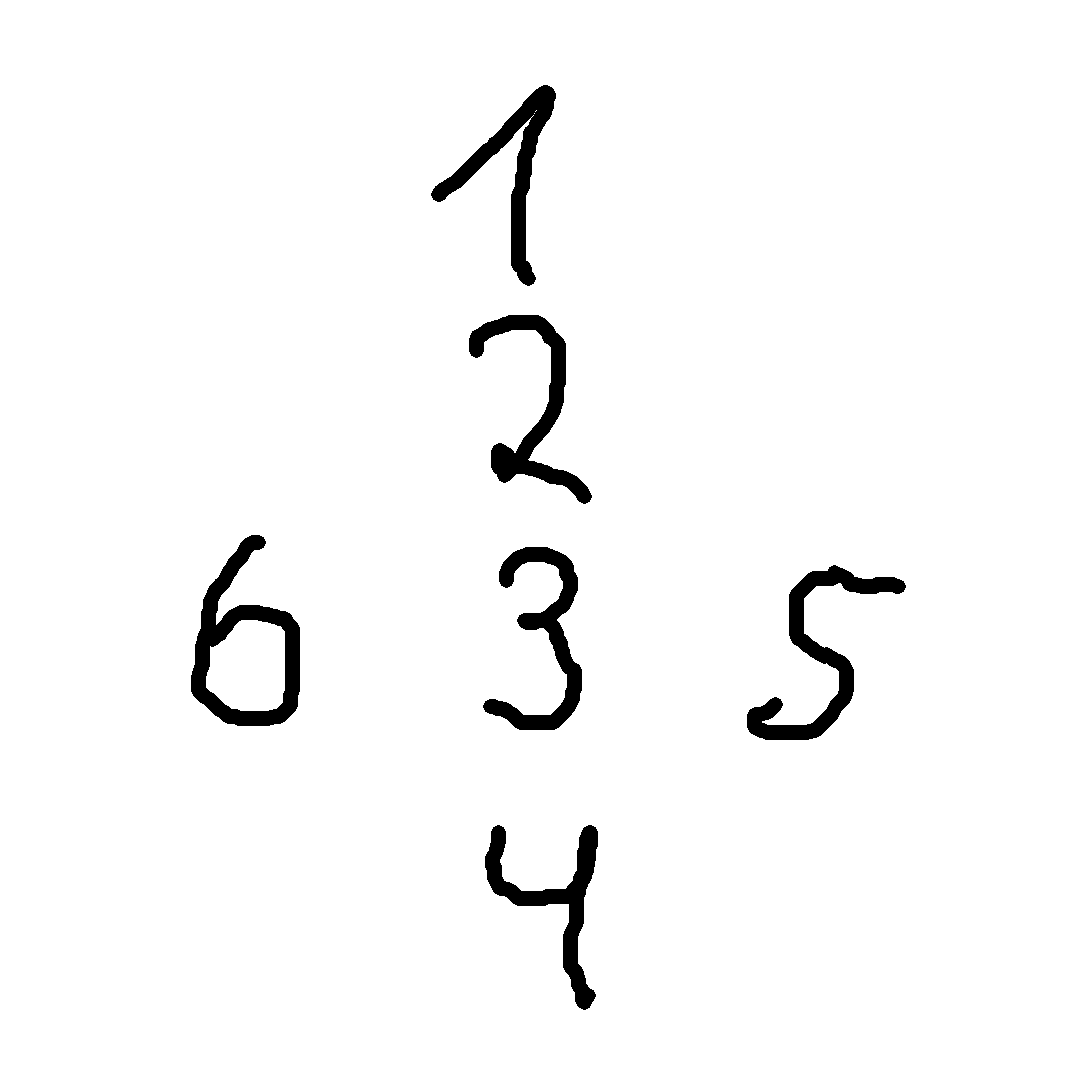 1
2
6 3 5
4